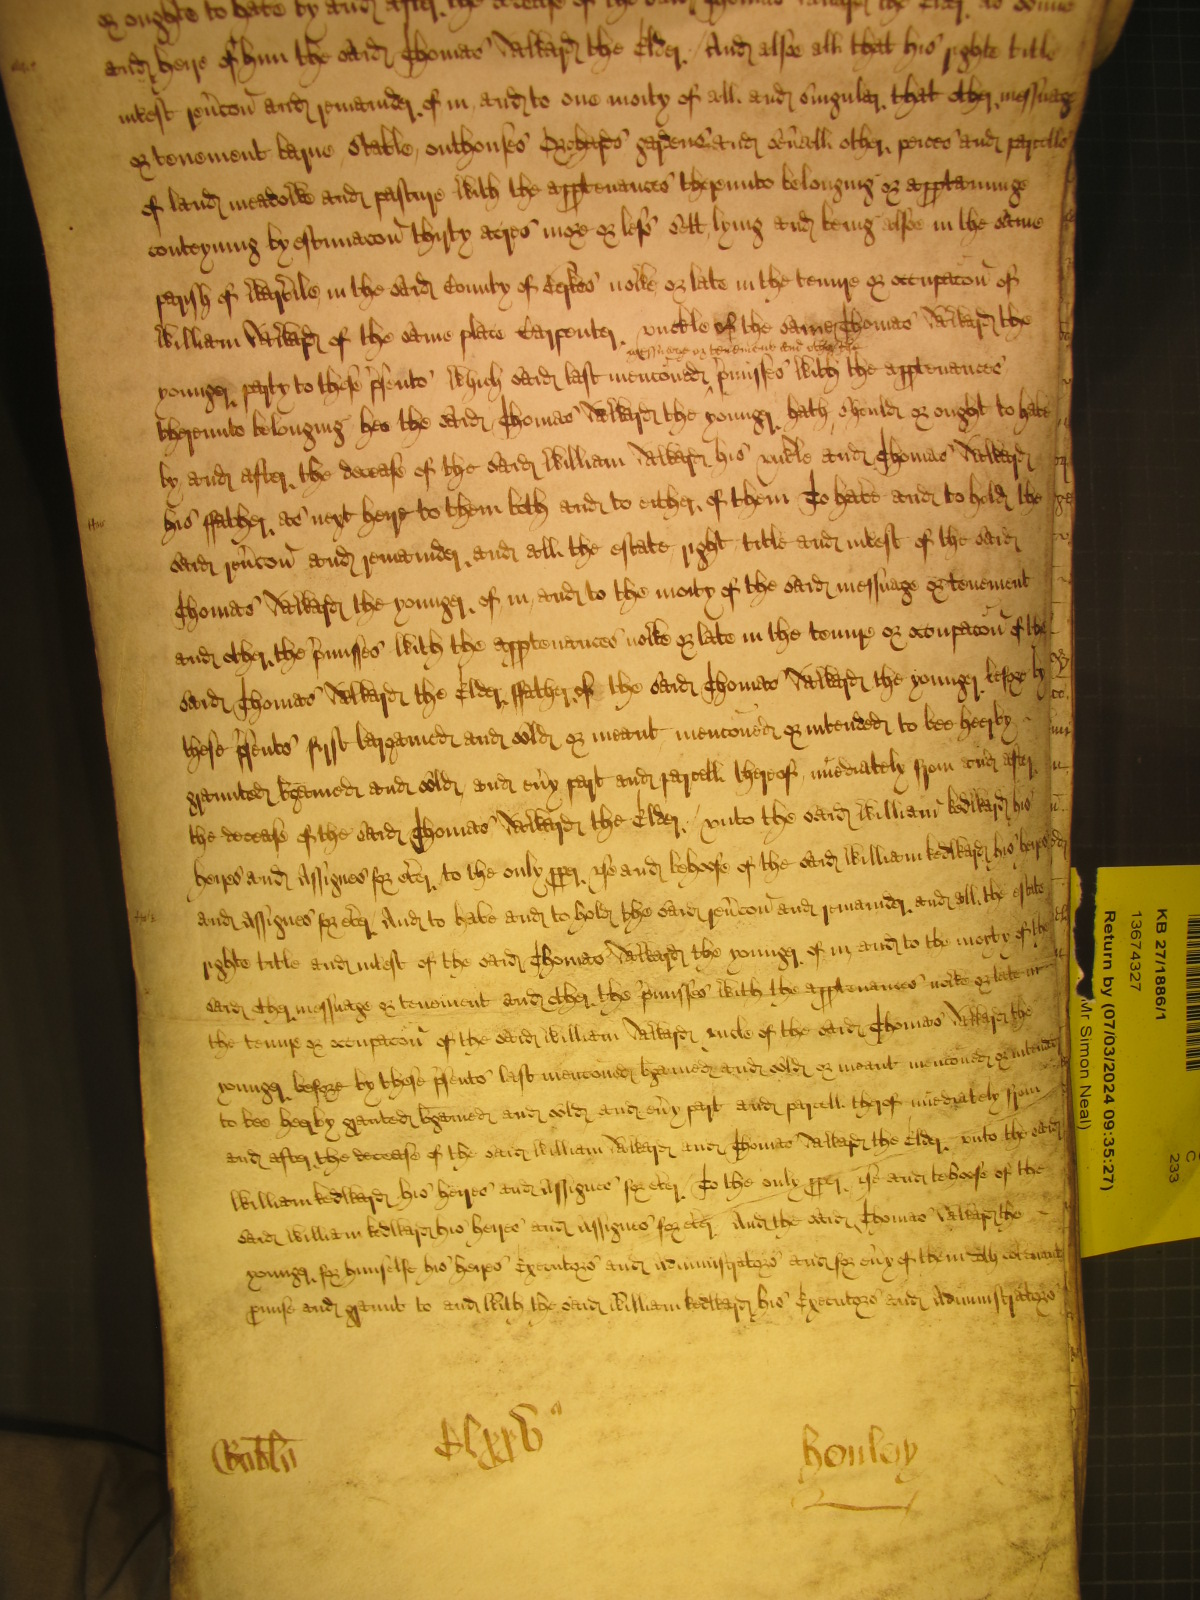 or oughte to have by and after the decease of the said Thomas Walkard the Elder as sonne
and heire of him the said Thomas Walkard the Elder / And alsoe all that his righte title
intest reṽcon and remainder of in and to one moity of all and singular that other messuage
or tenement barne stable outhouses Orchards gardens and seṽall other peices and parcells
of land meadowe and pasture with the apptenances thereunto belonging or apptaininge
conteyning by estimacon thirty acres more or less sett lying and being alsoe in the same
parish of in the said County of nowe or late in the tenure or occupacon of
William Walkard of the same place Carpenter unckle of the same Thomas Walkard the
messuage or tenement and other the
younger party to these p̃sents which said last menconed p̃misses with the apptenances
thereunto belonging hee the said Thomas Walkard the younger hath should or ought to have
by and after the decease of the said William Walkard his unckle and Thomas Walkard
his ffather as next heire to them both and to either of them To have and to hold the
said reṽcon and remainder and all the estate right title and intest of the said
Thomas Walkard the younger of in and to the moity of the said messuage or tenement
and other the p̃misses with the apptenances nowe or late in the tenure or occupacon of the
said Thomas Walkard the Elder ffather of the said Thomas Walkard the younger before by
these p̃sents first bargained and sold or meant menconed or intended to bee hereby
graunted bgained and sold and eṽy part and parcell thereof im̃ediately from and after
the decease of the said Thomas Walkard the Elder / unto the said William kedward his
heires and Assignes for ever to the only pper use and behoofe of the said William kedward his heires
and Assignes for ever And to have and to hold the said reṽcon and remainder and all the estate
righte title and intest of the said Thomas Walkard the younger of in and to the moity of the
said other messuage or tenement and other the p̃misses with the apptenances nowe or late in
the tenure or occupacon of the said William Walkard uncle of the said Thomas Walkard the
younger before by these p̃sents last menconed bgained and sold or meant menconed or intended
to bee hereby granted bgained and sold and eṽy part and parcell therof im̃ediately from
and after the decease of the said William Walkard and Thomas Walkard the Elder unto the said
William kedward his heires and Assignes for ever To the only pper use and behoofe of the
said William kedward his heires and Assignes for ever And the said Thomas Walkard the
younger for himselfe his heires Executors and Administrators and for eṽy of them doth covenant
pmise and graunt to and with the said William kedward his Executors and Administrators
Clxxv
Henley
KB 27/1886/1
13674327
Return by (07/03/2024 09:35:27)
Mr Simon Neal)
233